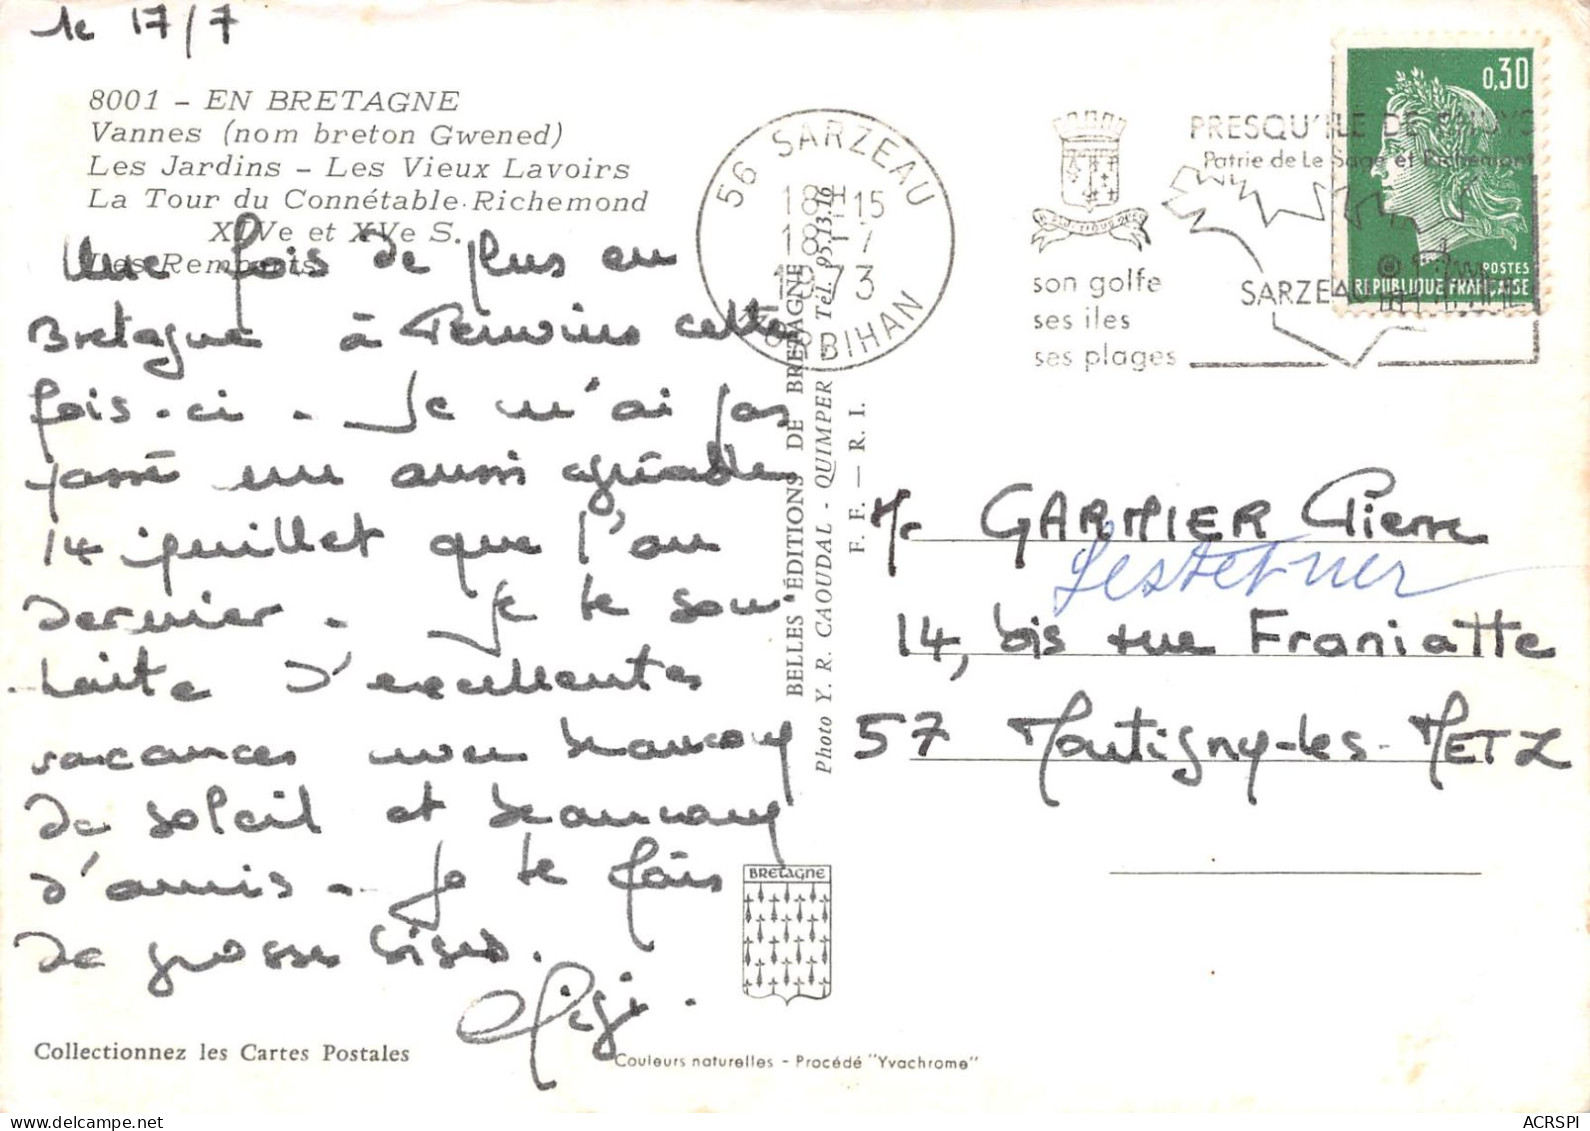 le 17/7
8001 - EN BRETAGNE
Vannes (nom breton Gwened)
Les Jardins - Les Vieux Lavoirs
La Tour du Connétable Richemond
XIVe et XVe S.
Les Remparts
Une fois de plus en
Bretagne à Penvins cette
fois-ci - Je n'ai pas
passé un aussi agréable
14 juillet que l'an
dernier - Je te sou-
haite d'excellentes
vacances avec beaucoup
de soleil et beaucoup
d'amis - Je te fais
de grosses bises.
Gigi.
Collectionnez les Cartes Postales
56 SARZEAU
18H15
18-7
1973
MORBIHAN
BELLES ÉDITIONS DE BRETAGNE
Photo Y. R. CAOUDAL - QUIMPER Tél. 95.13.16
F. F. — R. I.
BRETAGNE
Couleurs naturelles - Procédé "Yvachrome"
son golfe
ses iles
ses plages
PRESQU'ILE DE RHUYS
Patrie de Le Sage et Richemont
SARZEAU
0,30
POSTES
REPUBLIQUE FRANÇAISE
Mr GARNIER Pierre
Gestetner
14, bis rue Franiatte
57 Montigny-les-METZ
ACRSPI